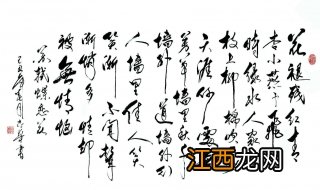 花褪残红青
杏小燕子飛
時绿水人家
枝上柳绵吹
天涯何
草墙里秋千
墙外道墙外行
人墙里佳人笑
笑渐不闻声
渐悄多情却
被無情恼
苏轼蝶恋花
江西龙网